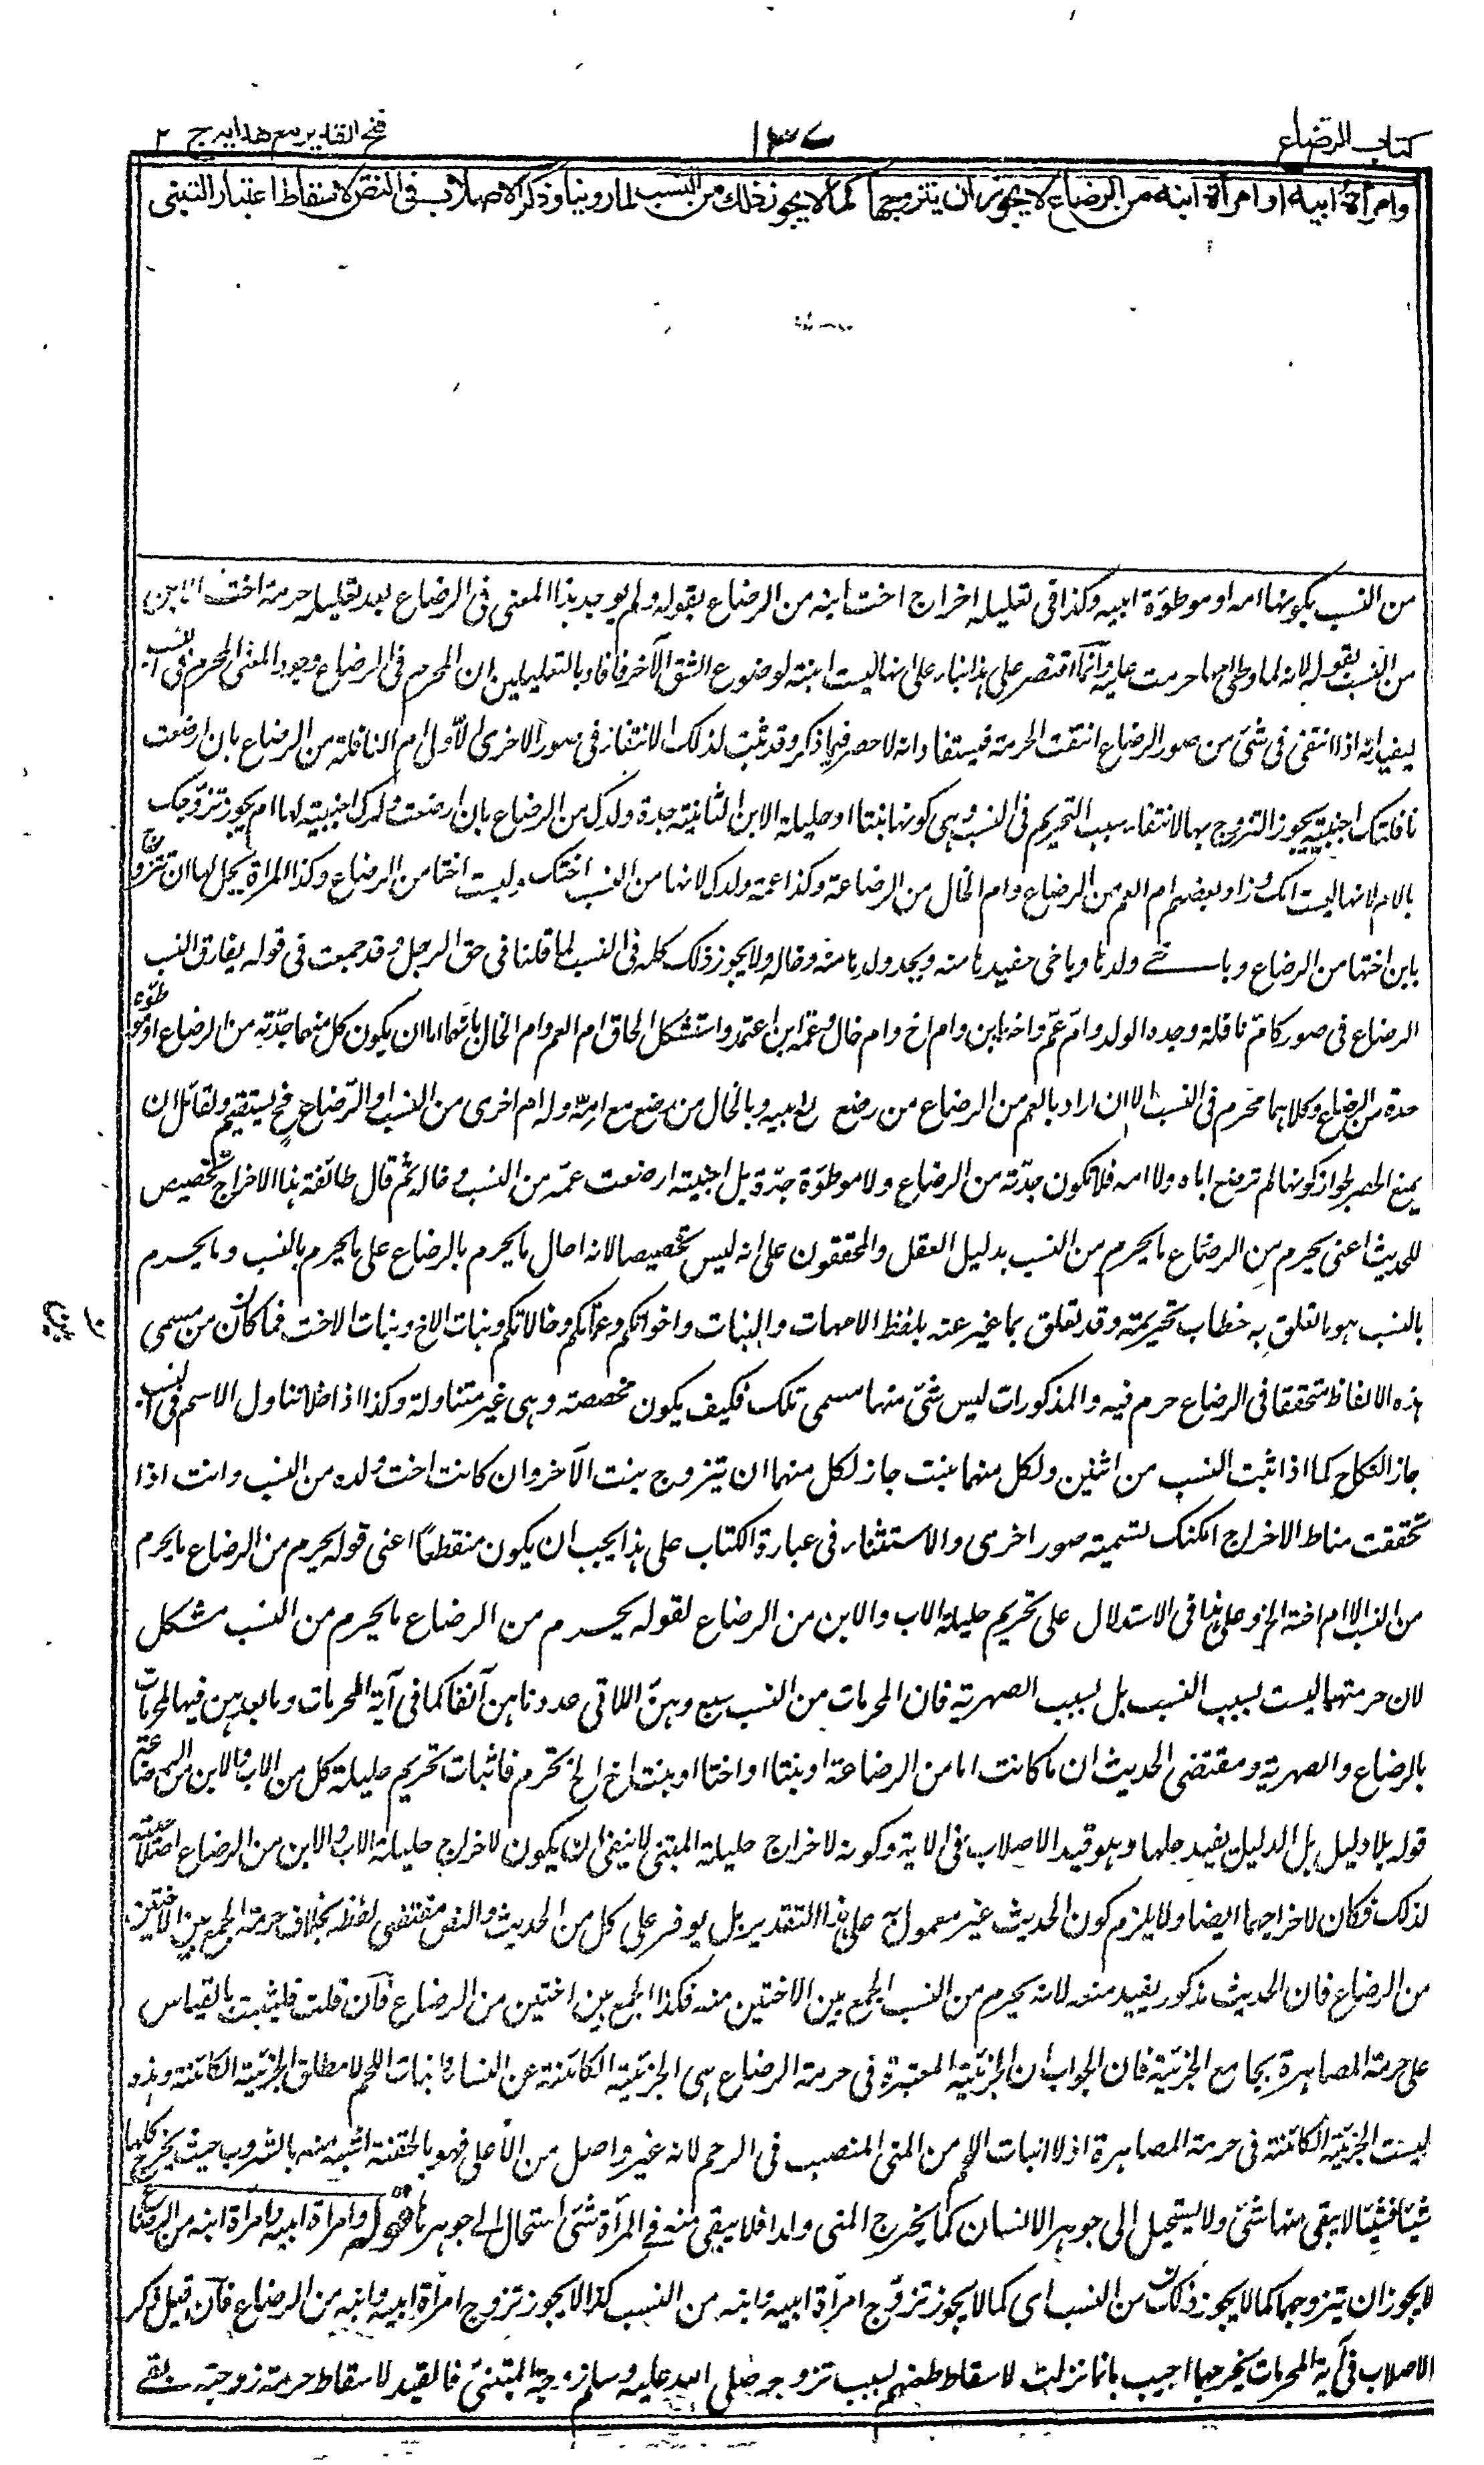 كتاب الرضاع
١٣٧
فتح القدير مع هدايه ج ٢
وامرأة ابيه او امرأة ابنه من الرضاع لا يجوز ان يتزوجها كما لا يجوز ذلك من النسب لما روينا وذكر الاصلاب فى النص لاسقاط اعتبار التبنى
من النسب بكونها امه او موطوءة ابيه وكذا فى تعليله اخراج اخت ابنه من الرضاع بقوله ولم يوجد هذا المعنى فى الرضاع بعد تعليله حرمة اخت الابن
من النسب بقوله لانه لما وطى امها حرمت عليه وانما اقتصر على هذا بناء على انها ليست ابنته لوضوح الشق الآخر فافاد بالتعليلين ان المحرم فى الرضاع وجود المعنى المحرم فى النسب
ليفيد انه اذا انتفى فى شئ من صور الرضاع انتفت الحرمة فيستفاد انه لا حصر فيما ذكر وقد ثبت لذلك الانتفاء فى صور الاخرى الاولى ام النافلة من الرضاع بان ارضعت
نافلتك اجنبية يجوز التزوج بها لانتفاء سبب التحريم فى النسب وهى كونها بنتا او حليلة الابن الثانية جدة ولدك من الرضاع بان ارضعت ولدك اجنبية لها ام يجوز تزوجك
بالام لانها ليست امك وزاد بعضهم ام العم من الرضاع وام الخال من الرضاعة وكذا عمة ولدك لانها من النسب اختك وليست اختا من الرضاع وكذا المرأة يحل لها ان تتزوج
بابن اختها من الرضاع وباخى ولدها وباخى حفيدها منه وبجد ولدها منه وخاله ولا يجوز ذلك كله فى النسب لما قلنا فى حق الرجل وقد جمعت فى قوله يفارق النسب
الرضاع فى صور كام نافلة وجدة الولد وام عم واخت ابن وام اخ وام خال وعمة ابن اعتمد واستشكل الحاق ام العم وام الخال بانهما اما ان يكون كل منهما جدته من الرضاع او موطوءة
جده من الرضاع وكلاهما محرم فى النسب الا ان اراد بالعم من الرضاع من رضع مع ابيه وبالخال من رضع مع امه وله ام اخرى من النسب او الرضاع فح يستقيم ولقائل ان
يمنع الحصر لجواز كونها لم ترضع اباه ولا امه فلا تكون جدته من الرضاع ولا موطوءة جده بل اجنبية ارضعت عمه من النسب وخاله ثم قال طائفة هذا الاخراج تخصيص
للحديث اعنى يحرم من الرضاع ما يحرم من النسب بدليل العقل والمحققون على انه ليس تخصيصا لانه احال ما يحرم بالرضاع على ما يحرم بالنسب وما يحرم
بالنسب هو ما تعلق به خطاب تحريمه وقد تعلق بما عبر عنه بلفظ الامهات والبنات واخواتكم وعماتكم وخالاتكم وبنات الاخ وبنات الاخت فما كان من مسمى
هذه الالفاظ متحققا فى الرضاع حرم فيه والمذكورات ليس شئ منها مسمى تلك فكيف يكون مخصصة وهى غير متناولة وكذا اذا خلا تناول الاسم فى النسب
جاز النكاح كما اذا ثبت النسب من اثنين ولكل منهما بنت جاز لكل منهما ان يتزوج بنت الآخر وان كانت اخت ولده من النسب وانت اذا
تحققت مناط الاخراج امكنك تسمية صور اخرى والاستثناء فى عبارة الكتاب على هذا يجب ان يكون منقطعا اعنى قوله يحرم من الرضاع ما يحرم
من النسب الا ام اخته الخ وعلى هذا فى الاستدلال على تحريم حليلة الاب والابن من الرضاع لقوله يحرم من الرضاع ما يحرم من النسب مشكل
لان حرمتهما ليست بسبب النسب بل بسبب الصهرية فان المحرمات من النسب سبع وهن اللاتى عددناهن آنفا كما فى آية المحرمات وما بعدهن فيها المحرمات
بالرضاع والصهرية ومقتضى الحديث ان ما كانت اما من الرضاعة او بنتا او اختا او بنت اخ الخ تحرم فاثبات تحريم حليلة كل من الاب والابن من الرضاعة
قوله بلا دليل بل الدليل يفيد حلها وهو قيد الاصلاب فى الآية وكونه لاخراج حليلة المتبنى لا ينفى ان يكون لاخراج حليلة الاب والابن من الرضاع اصلاحيته
لذلك فكان لاخراجهما ايضا ولا يلزم كون الحديث غير معمول به على هذا التقدير بل يوفر على كل من الحديث والنص مقتضى لفظه بخلاف حرمة الجمع بين الاختين
من الرضاع فان الحديث مذكور يفيد منعه لانه يحرم من النسب الجمع بين الاختين منه فكذا الجمع بين اختين من الرضاع فان قلت فليثبت بالقياس
على حرمة المصاهرة بجامع الجزئية فان الجواب ان الجزئية المعتبرة فى حرمة الرضاع هى الجزئية الكائنة عن النشاة وانبات اللحم لا مطلق الجزئية الكائنة وهذه
ليست الجزئية الكائنة فى حرمة المصاهرة اذ لا انبات اللحم من المنى المنصب فى الرحم لانه غير واصل من الاعلى فهو بالحقنة اشبه منه بالشروب حيث يخرج كلها
شيئا فشيئا لا يبقى منها شئ ولا يستحيل الى جوهر الانسان كما يخرج المنى ولدا فلا يبقى منه فى المرأة شئ استحال الى جوهرها قوله وامرأة ابيه وامرأة ابنه من الرضاع
لا يجوز ان يتزوجها كما لا يجوز ذلك من النسب اى كما لا يجوز تزوج امرأة ابيه وابنه من النسب كذا لا يجوز تزوج امرأة ابيه وابنه من الرضاع فان قيل ذكر
الاصلاب فى آية المحرمات يخرجها اجيب بانها نزلت لاسقاط طعنهم بسبب تزوجه صلى الله عليه وسلم زوجة المتبنى فالقيد لاسقاط حرمة زوجته بقى